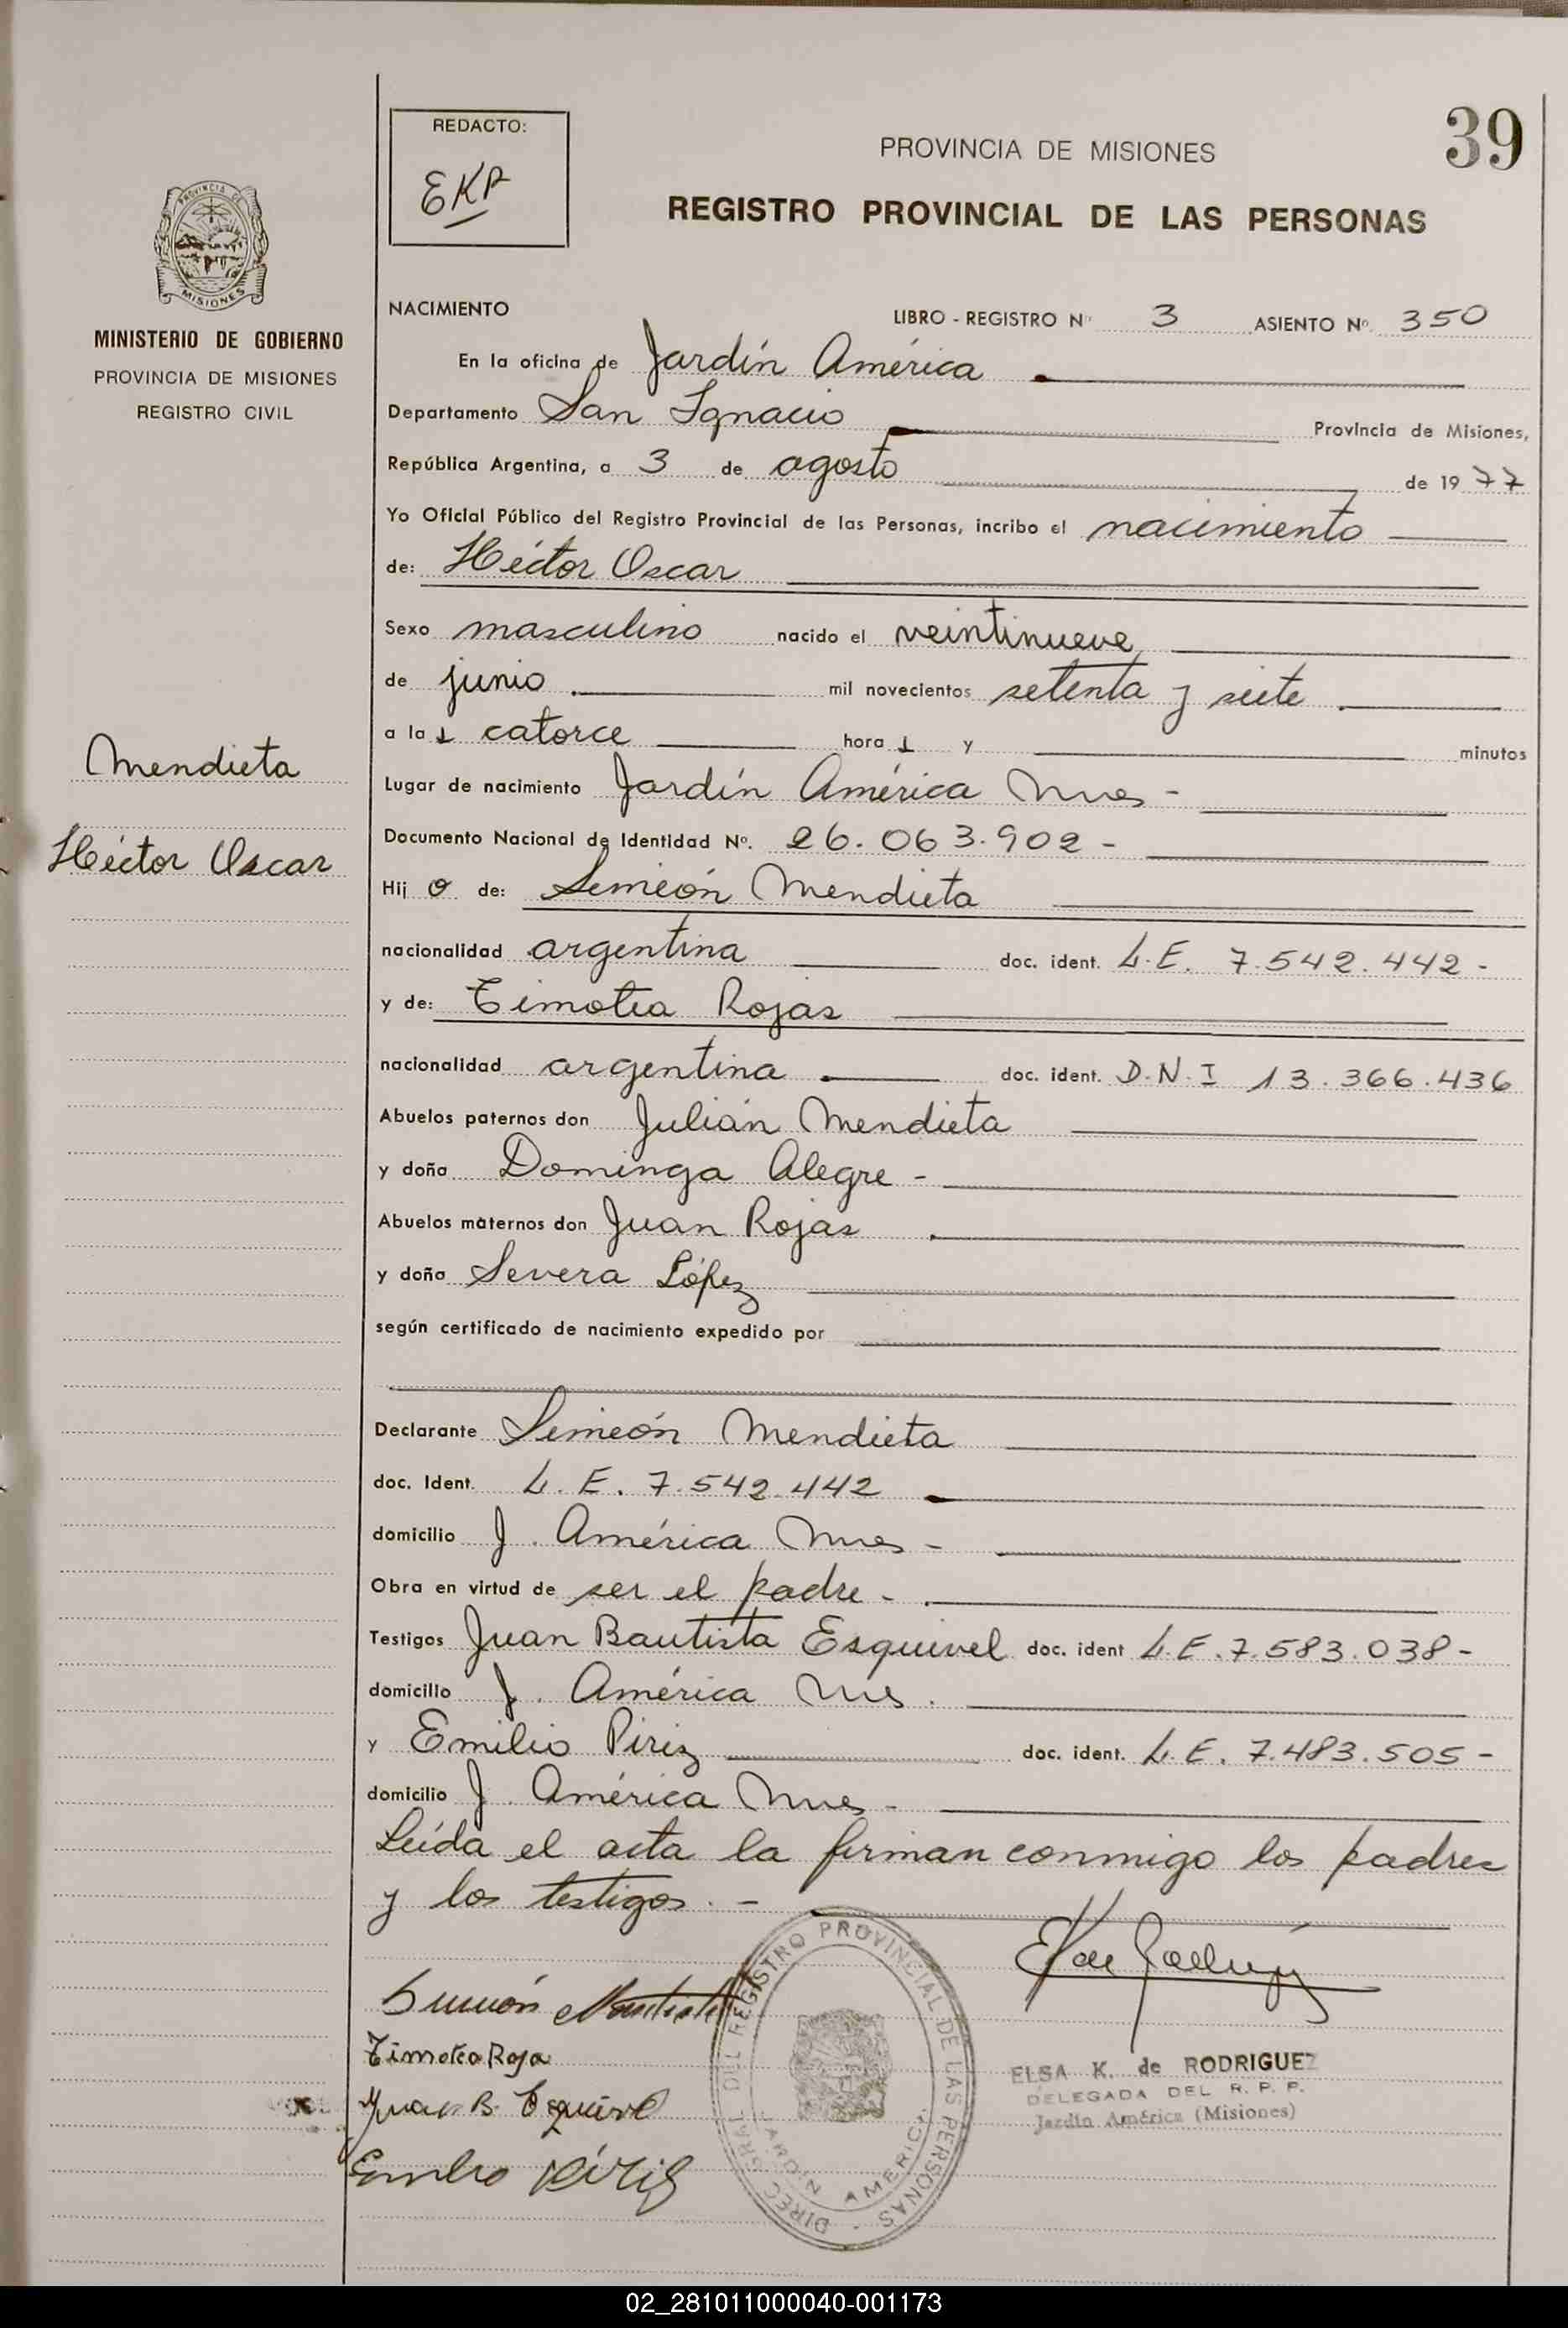 39
REDACTO:
EKR
PROVINCIA DE MISIONES
REGISTRO PROVINCIAL DE LAS PERSONAS
PROVINCIA DE
MISIONES
MINISTERIO DE GOBIERNO
PROVINCIA DE MISIONES
REGISTRO CIVIL
Mendieta
Héctor Oscar
NACIMIENTO LIBRO - REGISTRO Nº 3 ASIENTO Nº 350
En la oficina de Jardín América
Departamento San Ignacio Provincia de Misiones,
República Argentina, a 3 de agosto de 1977
Yo Oficial Público del Registro Provincial de las Personas, incribo el nacimiento
de: Héctor Oscar
Sexo masculino nacido el veintinueve
de junio mil novecientos setenta y siete
a la s catorce hora s y minutos
Lugar de nacimiento Jardín América Mnes -
Documento Nacional de Identidad Nº. 26.063.902 -
Hij o de: Simeón Mendieta
nacionalidad argentina doc. ident. L.E. 7.542.442 -
y de: Timotea Rojas
nacionalidad argentina doc. ident. D.N.I 13.366.436
Abuelos paternos don Julián Mendieta
y doña Dominga Alegre -
Abuelos maternos don Juan Rojas
y doña Severa López
según certificado de nacimiento expedido por
Declarante Simeón Mendieta
doc. Ident. L.E. 7.542.442
domicilio J. América Mnes -
Obra en virtud de ser el padre -
Testigos Juan Bautista Esquivel doc. ident L.E. 7.583.038 -
domicilio J. América Mnes.
y Emilio Piriz doc. ident. L.E. 7.483.505 -
domicilio J. América Mnes -
Leída el acta la firman conmigo los padres
y los testigos. -
Simeón Mendieta
Timotea Roja
Juan B. Esquivel
Emilio Píriz
DIREC. GRAL. DEL REGISTRO PROVINCIAL DE LAS PERSONAS
JARDIN AMERICA
ELSA K. de RODRIGUEZ
DELEGADA DEL R. P. P.
Jardín América (Misiones)
02_281011000040-001173